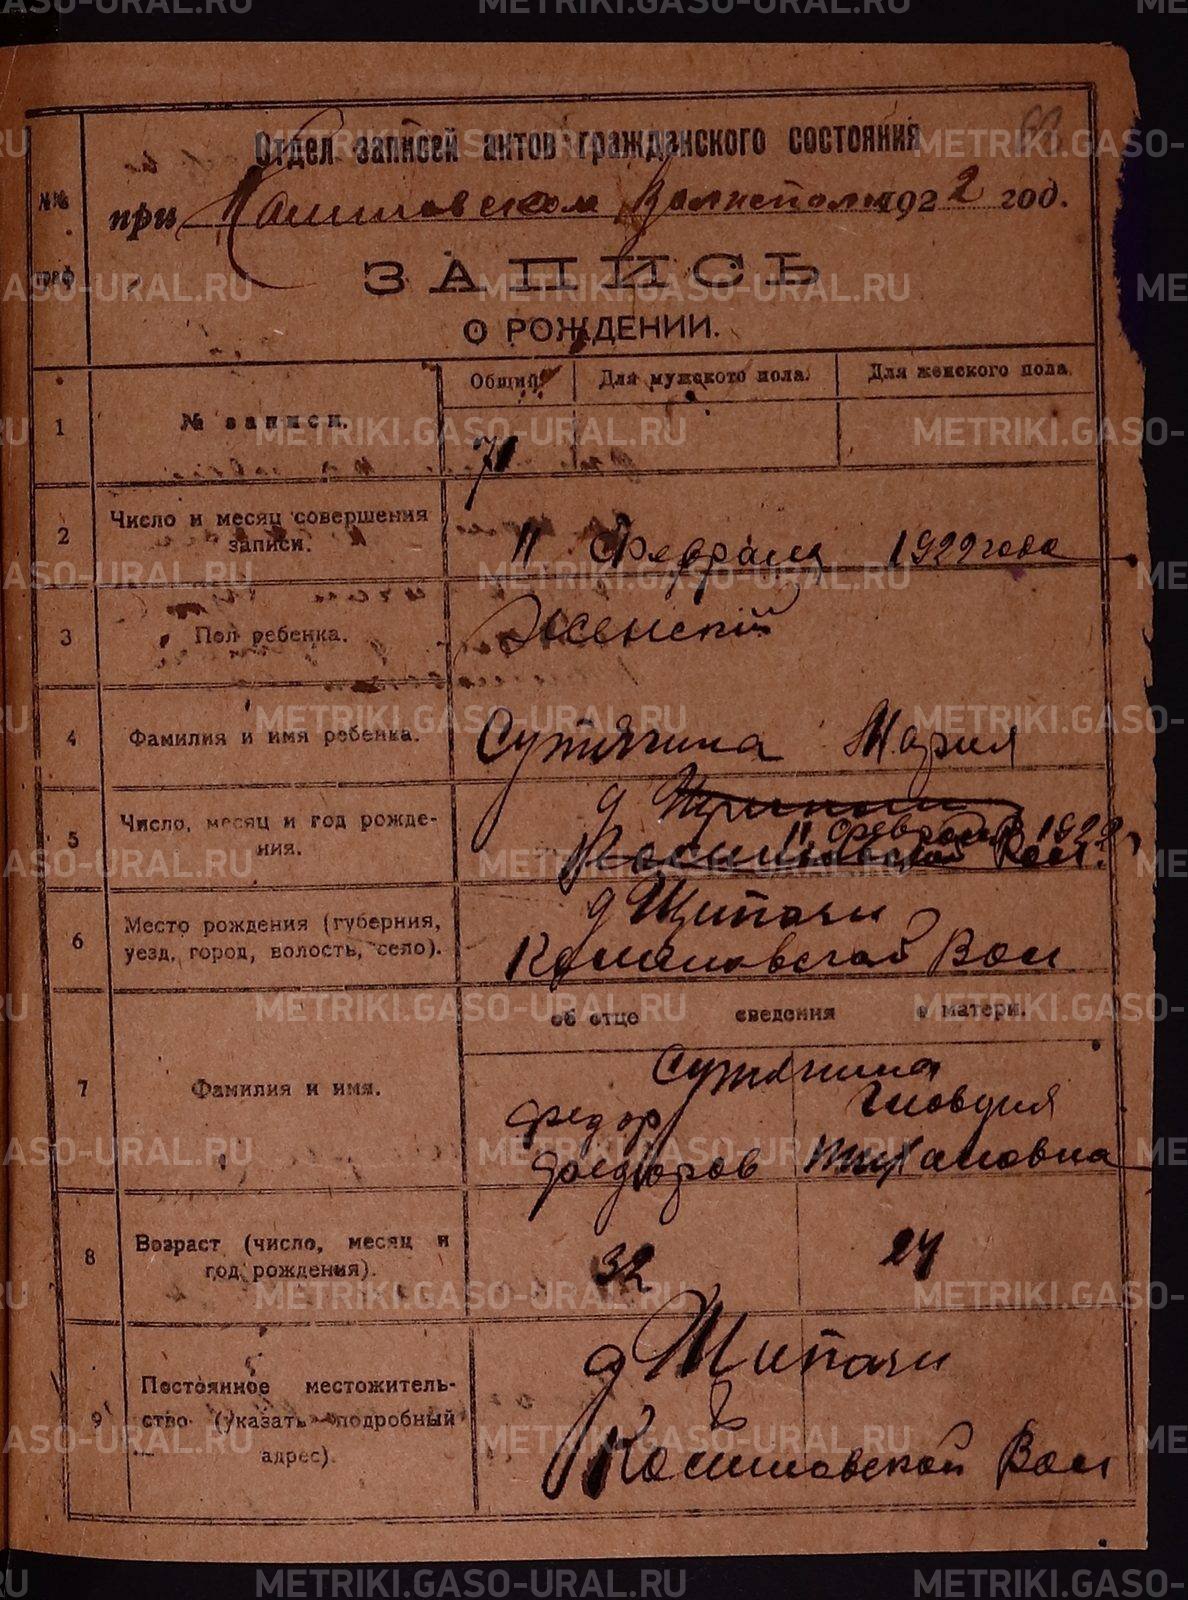 Отдел записей актов гражданского состояния
№№ граф
при Волисполк 1922 год.
ЗАПИСЬ
О РОЖДЕНИИ.
Общий Для мужского пола. Для женского пола.
1 № записи. 71
2 Число и месяц совершения записи. 11 Февраля 1922 года
3 Пол ребенка. Женский
4 Фамилия и имя ребенка. Сутягина Мария
д
5 Число, месяц и год рождения. 11 февраля 1922
Вол.
6 Место рождения (губерния, уезд, город, волость, село). д Щипачи
Вол
об отце сведения о матери.
Сутягина
7 Фамилия и имя. Федор Клавдия
Федоров Тихановна
8 Возраст (число, месяц и год рождения). 32 24
д Щипачи
9 Постоянное местожительство (указать подробный адрес).
Вол
METRIKI.GASO-URAL.RU